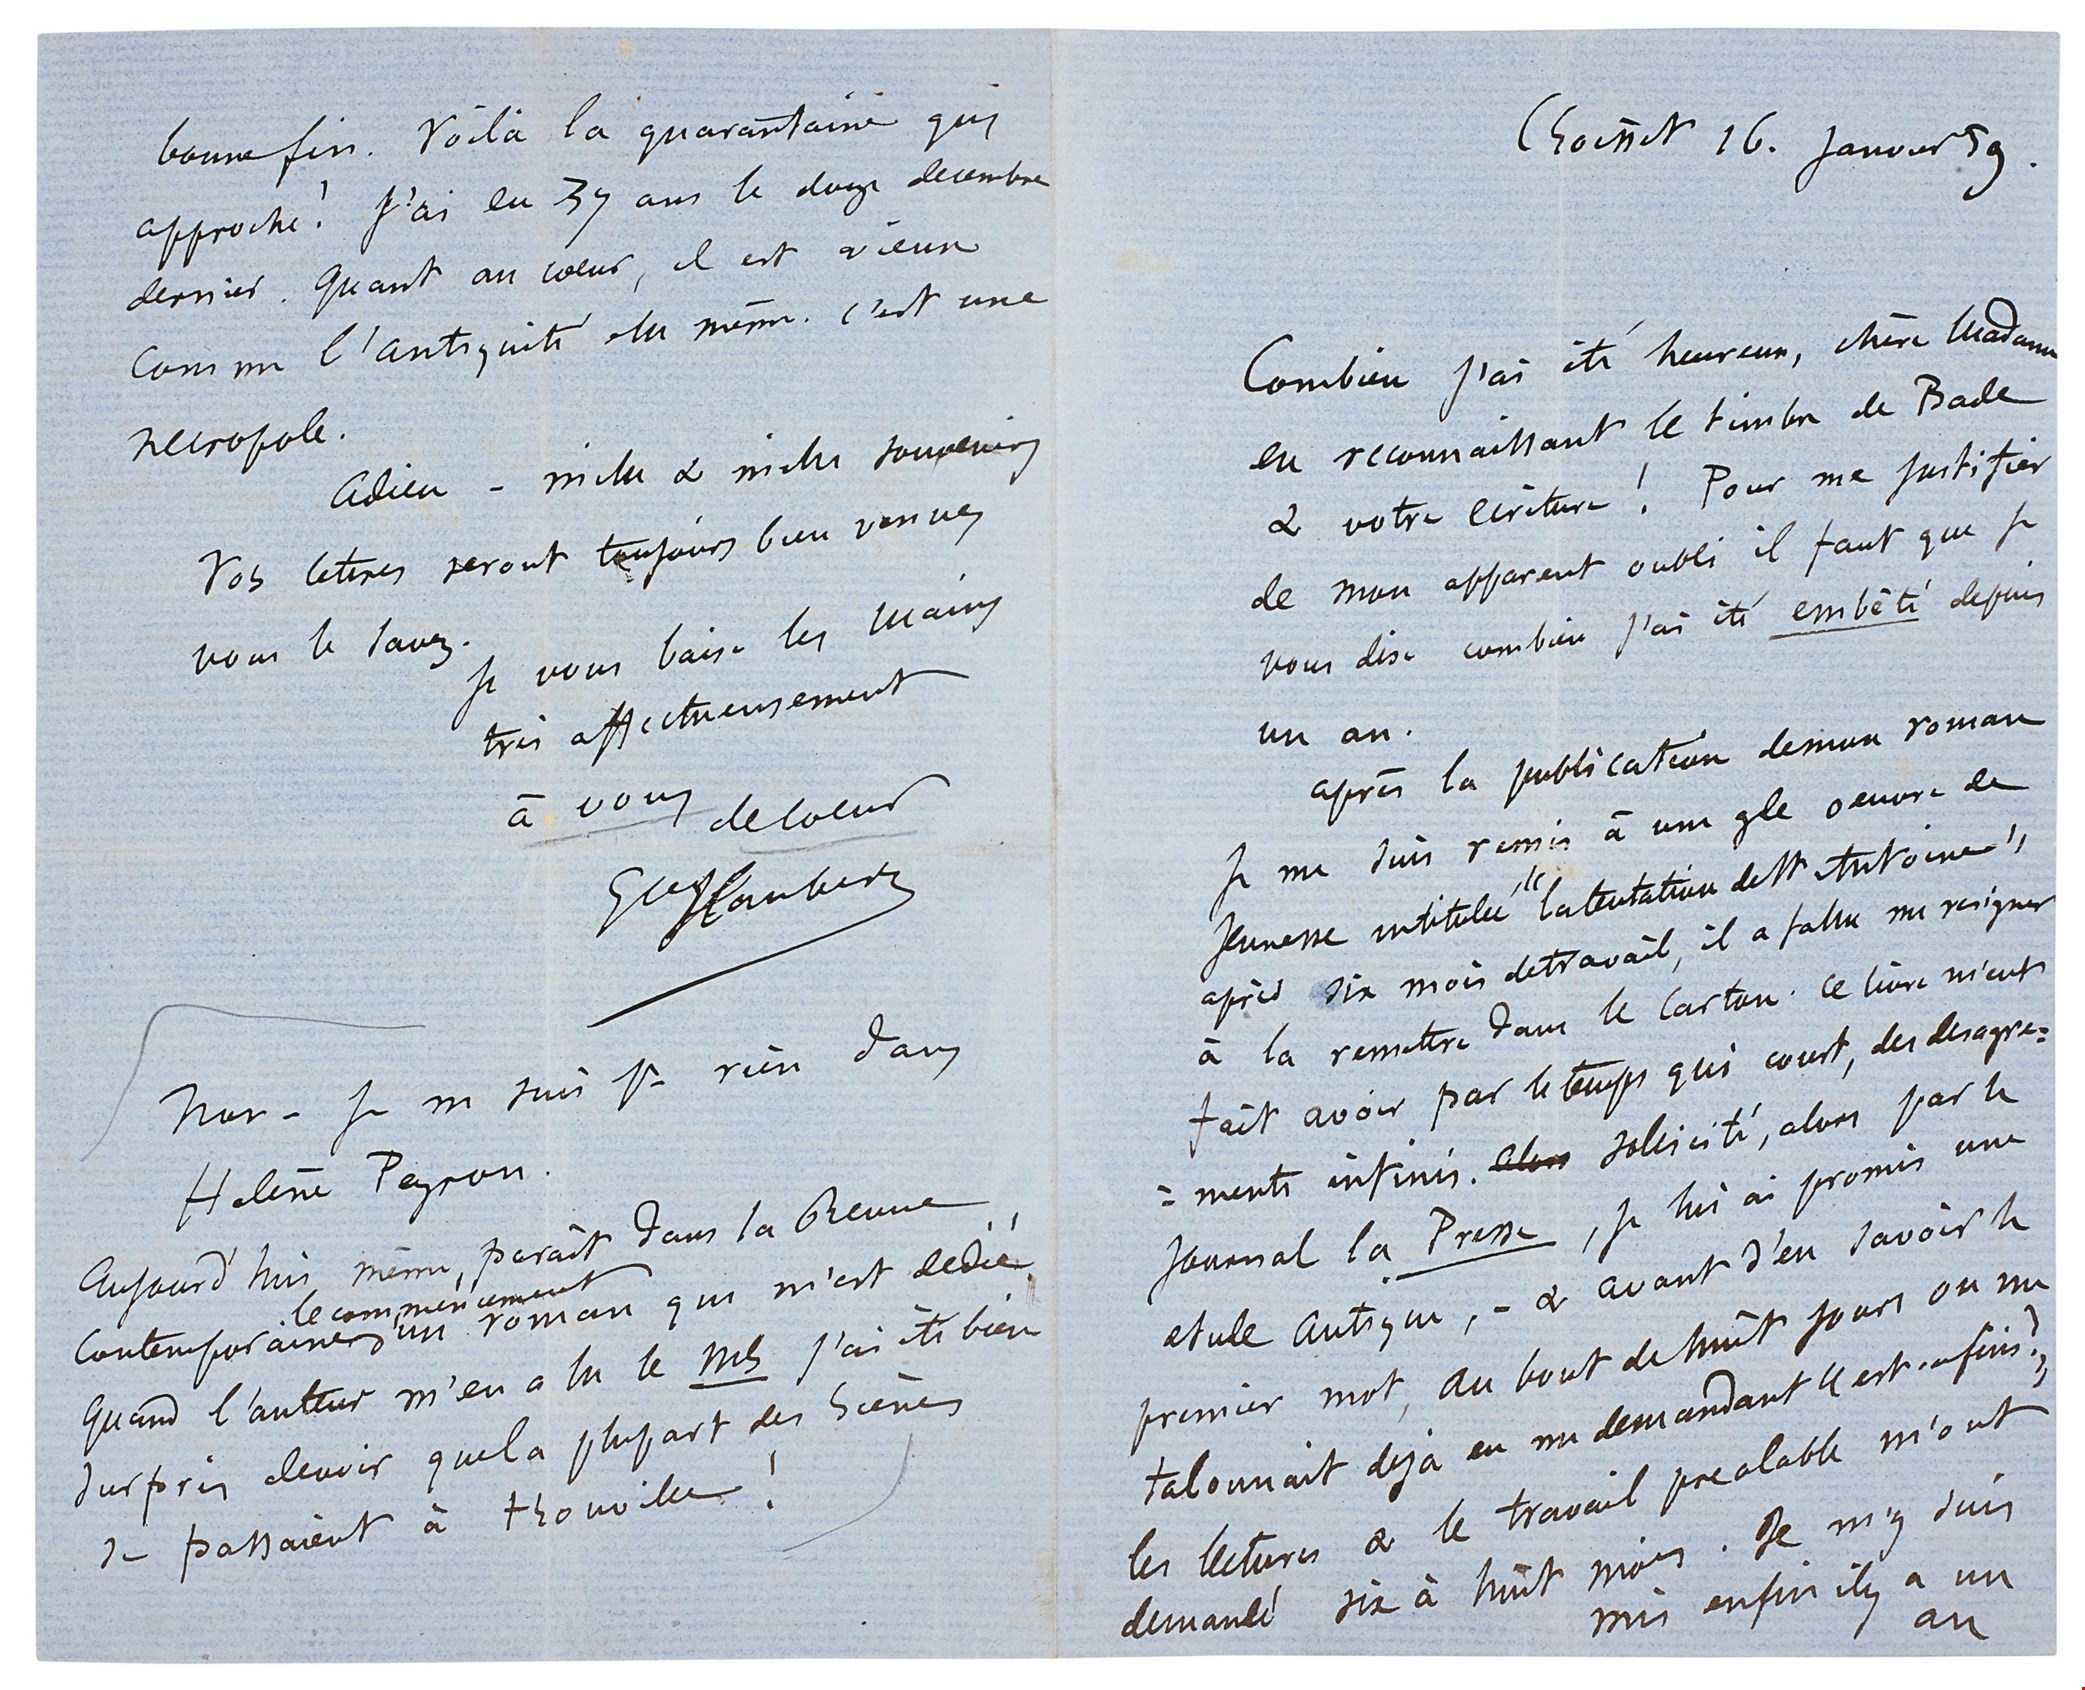 Croisset 16. janvier 59.
Combien j'ai été heureux, chère Madame
en reconnaissant le timbre de Bade
& votre écriture ! Pour me justifier
de mon apparent oubli il faut que je
vous dise combien j'ai été embêté depuis
un an.
après la publication de mon roman
je me suis remis à une gde oeuvre de
jeunesse intitulée "la tentation de St Antoine",
après six mois de travail, il a fallu me résigner
à la remettre dans le carton. Ce livre m'eut
fait avoir par le temps qui court, des désagré=
=ments infinis. alors sollicité, alors par le
journal la Presse, je lui ai promis une
etude antique, - & avant d'en savoir le
premier mot, au bout de huit jours on me
talonnait déjà en me demandant "est-ce fini?"
les lectures & le travail préalable m'ont
demandé six à huit mois. Je m'y suis
mis enfin il y a un
an
bonne fin. Voilà la quarantaine qui
approche! J'ai eu 37 ans le douze decembre
dernier. Quant au coeur, il est vieux
comme l'antiquité elle même. c'est une
nécropole.
Adieu - mille & mille souvenirs
Vos lettres seront toujours bien venues
vous le savez.
Je vous baise les mains
très affectueusement
à vous de coeur
Gve Flaubert
Non - je ne suis pr rien dans
Helène Peyron.
Aujourd'hui même, parait dans la Revue
le commencement
contemporaine d'un roman qui m'est dédié,
Quand l'auteur m'en a lu le MS j'ai été bien
surpris de voir que la plupart des scènes
se passaient à trouville !